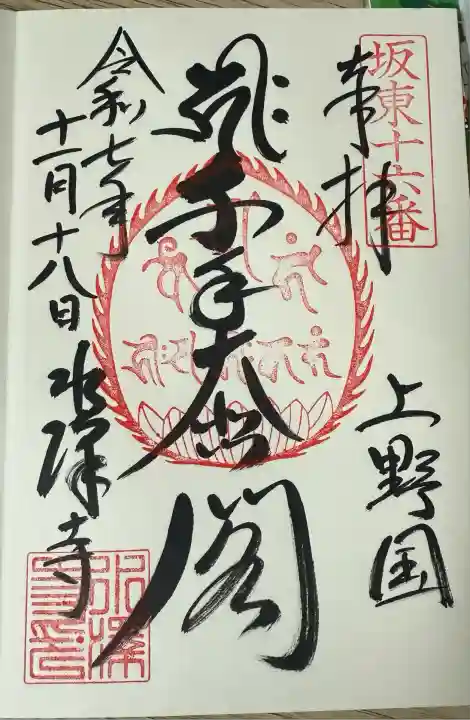 坂東十六番
奉拝
上野国
千手大悲閣
令和七年
十一月十八日
水澤寺